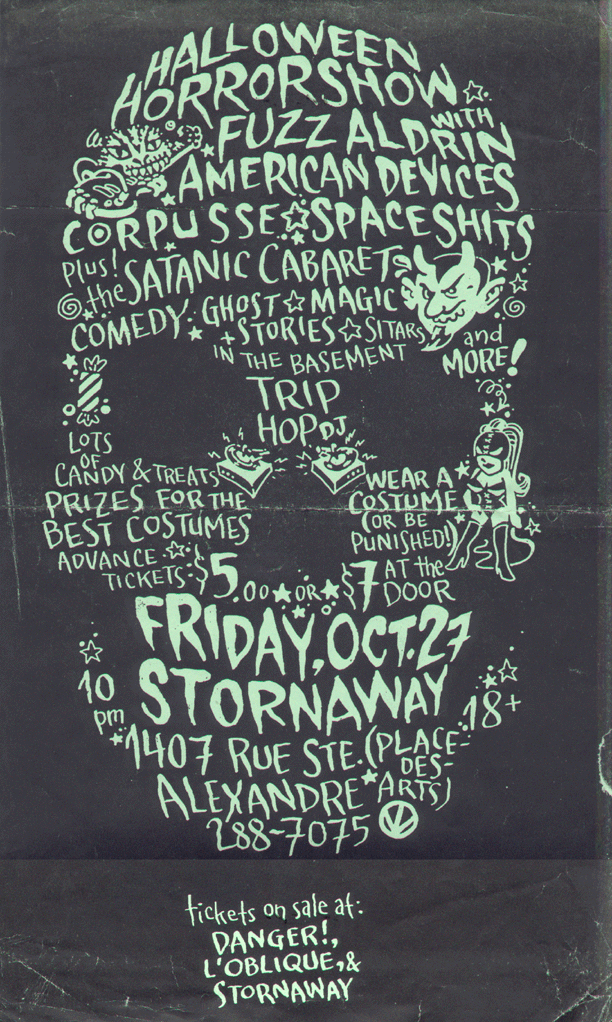 HALLOWEEN
HORRORSHOW
WITH
FUZZ ALDRIN
AMERICAN DEVICES
CORPUSSE ☆ SPACESHITS
Plus!
the SATANIC CABARET
COMEDY ★ GHOST ☆ MAGIC
+ STORIES ☆ SITARS
IN THE BASEMENT
and
MORE!
TRIP
HOP DJ
LOTS
OF
CANDY & TREATS
PRIZES FOR THE
BEST COSTUMES
WEAR A
COSTUME
(OR BE
PUNISHED!)
ADVANCE
TICKETS: $5.00 ★ OR ★ $7 AT the
DOOR
FRIDAY, OCT. 27
10
pm
STORNAWAY
18+
1407 RUE STE. (PLACE-
DES-
ALEXANDRE ARTS)
288-7075
tickets on sale at:
DANGER!,
L'OBLIQUE, &
STORNAWAY